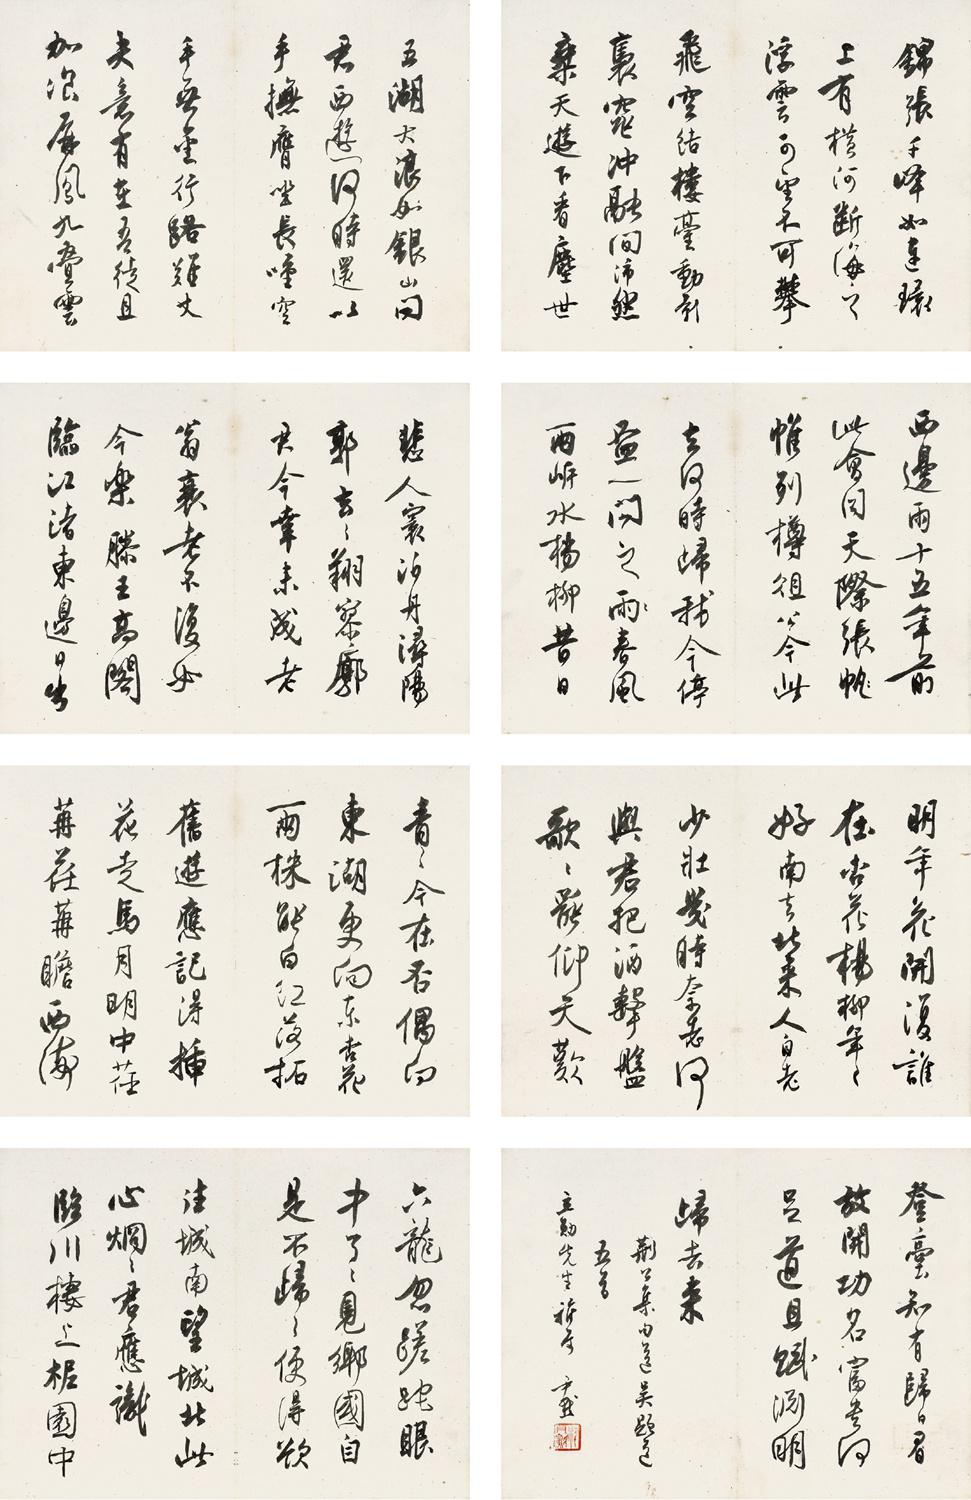 五湖大浪如銀山問
君西遊何時還以
手撫膺坐長嘆空
手無金行路難丈
夫意有在吾徒且
加飡屏風九疊雲
錦張千峰如連環
上有橫河斷海之
浮雲可望不可攀
飛空結樓臺動影
裊窕沖融間沛然
乘天遊下看塵世
悲人寰泊舟潯陽
郭去去翔寥廓
君今幸未成老
翁衰老不復如
今樂滕王高閣
臨江渚東邊日出
西邊雨十五年前
此會同天際張帷
列樽俎公今此
去何時歸我今停
盃一問之春風
兩岸水楊柳昔日
青青今在否偶向
東湖更向東杏花
兩株能白紅落拓
舊遊應記得插
花走馬月明中荏
苒荏苒瞻西海
明年花開復誰
在杏花楊柳年年
好南去北來人自老
少壯幾時奈老何
與君把酒擊盤
歌歌罷仰天歎
六龍忽蹉跎眼
中了了見鄉國自
是不歸歸便得欲
往城南望城北此
心炯炯君應識
臨川樓上柅園中
登臺知有歸日眉
放開功名富貴何
足道且賦淵明
歸去來
荊公集句送吳顯道
五首
立勛先生